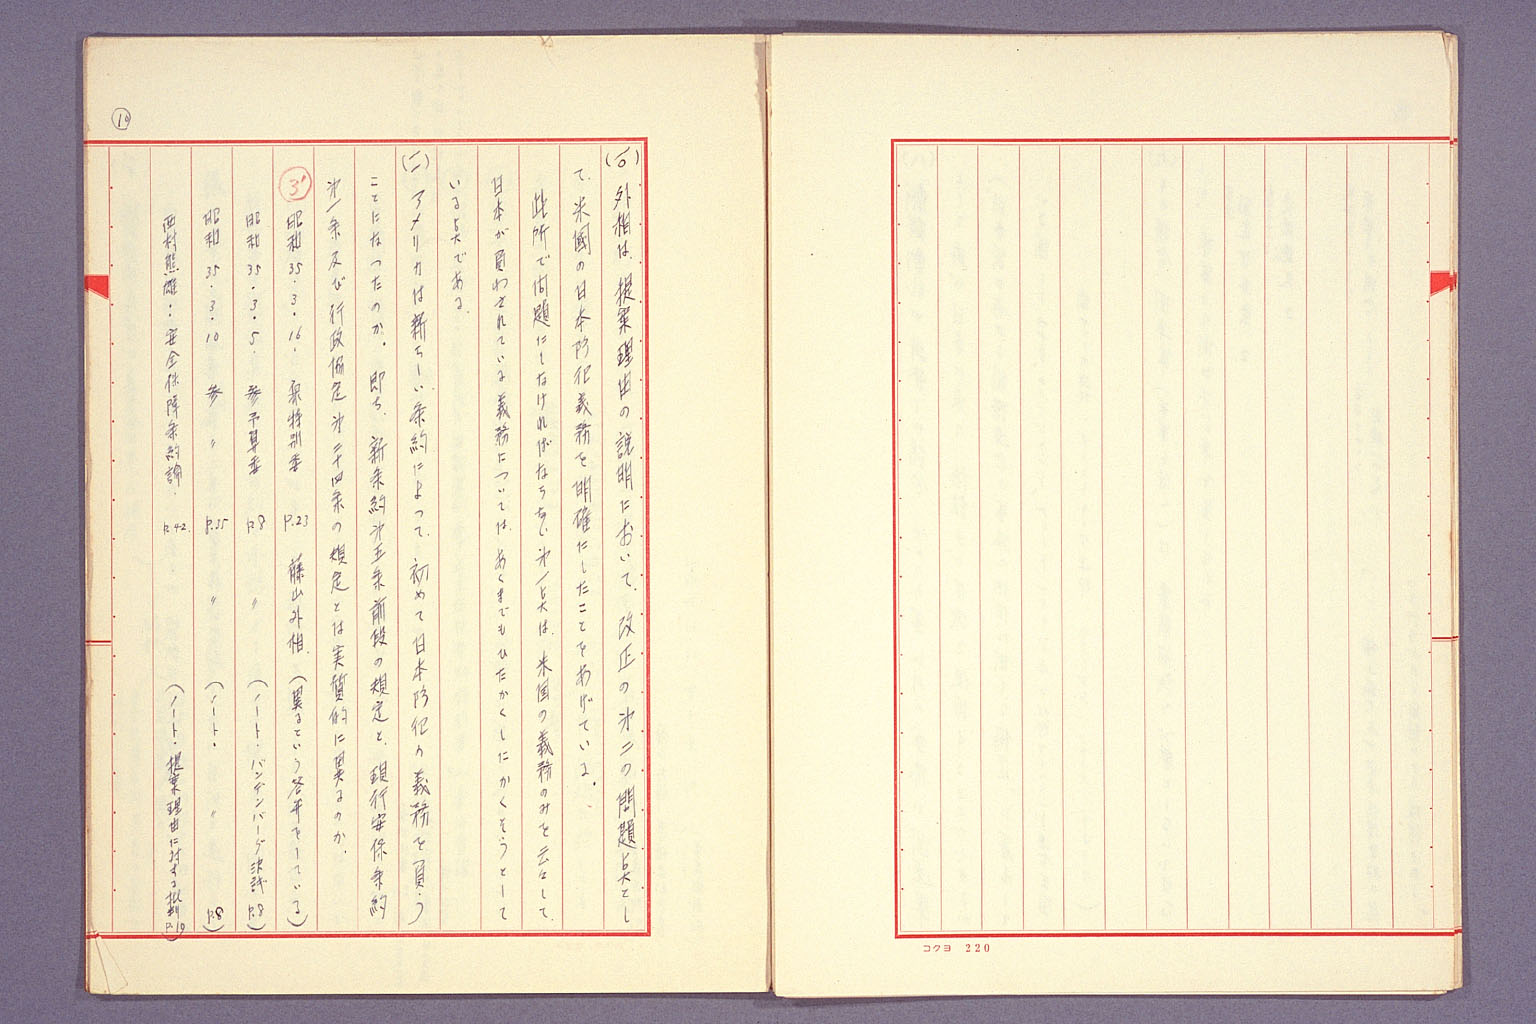 (一〇) 外相は、提案理由の説明において、改正の㐧二の問題点とし
て、米國の日本防衛義務を明確にしたことをあげている。
此所で問題にしなければならない㐧一点は、米国の義務のみを云々して、
日本が負わされている義務については、あくまでもひたかくしにかくそうとして
いる点である。
(一一) アメリカは新らしい条約によって、初めて日本防衛の義務を負う
ことになったのか。即ち、新条約㐧五条前段の規定と、現行安保条約
㐧一条及び行政協定㐧二十四条の規定とは実質的に異るのか。
3' 昭和35.3.16. 衆特別委 P.23 藤山外相. (異るという答弁をしている)
昭和35.3.5. 参予算委 P.8 〃 (ノート・バンデンバーグ決議 P.8)
昭和35.3.10 参 〃 P.35 〃 (ノート. 〃 P.8)
西村熊雄:安全保障条約論. P.42. (ノート・提案理由に対する批判 P.19)
10
コクヨ 220